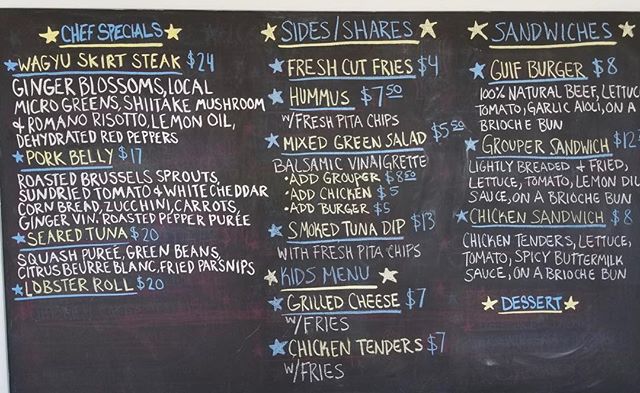 CHEF SPECIALS
WAGYU SKIRT STEAK $24
GINGER BLOSSOMS, LOCAL
MICRO GREENS, SHIITAKE MUSHROOM
& ROMANO RISOTTO, LEMON OIL,
DEHYDRATED RED PEPPERS
PORK BELLY $17
ROASTED BRUSSELS SPROUTS,
SUNDRIED TOMATO & WHITE CHEDDAR
CORN BREAD, ZUCCHINI, CARROTS,
GINGER VIN. ROASTED PEPPER PURÉE
SEARED TUNA $20
SQUASH PURÉE, GREEN BEANS,
CITRUS BEURRE BLANC, FRIED PARSNIPS
LOBSTER ROLL $20
SIDES/SHARES
FRESH CUT FRIES $4
HUMMUS $7.50
W/FRESH PITA CHIPS
MIXED GREEN SALAD $5.50
BALSAMIC VINAIGRETTE
•ADD GROUPER $8.50
•ADD CHICKEN $5
•ADD BURGER $5
SMOKED TUNA DIP $13
WITH FRESH PITA CHIPS
KIDS MENU
GRILLED CHEESE $7
W/FRIES
CHICKEN TENDERS $7
W/FRIES
SANDWICHES
GULF BURGER $8
100% NATURAL BEEF, LETTUC
TOMATO, GARLIC AIOLI, ON A
BRIOCHE BUN
GROUPER SANDWICH $12
LIGHTLY BREADED & FRIED,
LETTUCE, TOMATO, LEMON DIL
SAUCE, ON A BRIOCHE BUN
CHICKEN SANDWICH $8
CHICKEN TENDERS, LETTUCE,
TOMATO, SPICY BUTTERMILK
SAUCE, ON A BRIOCHE BUN
DESSERT